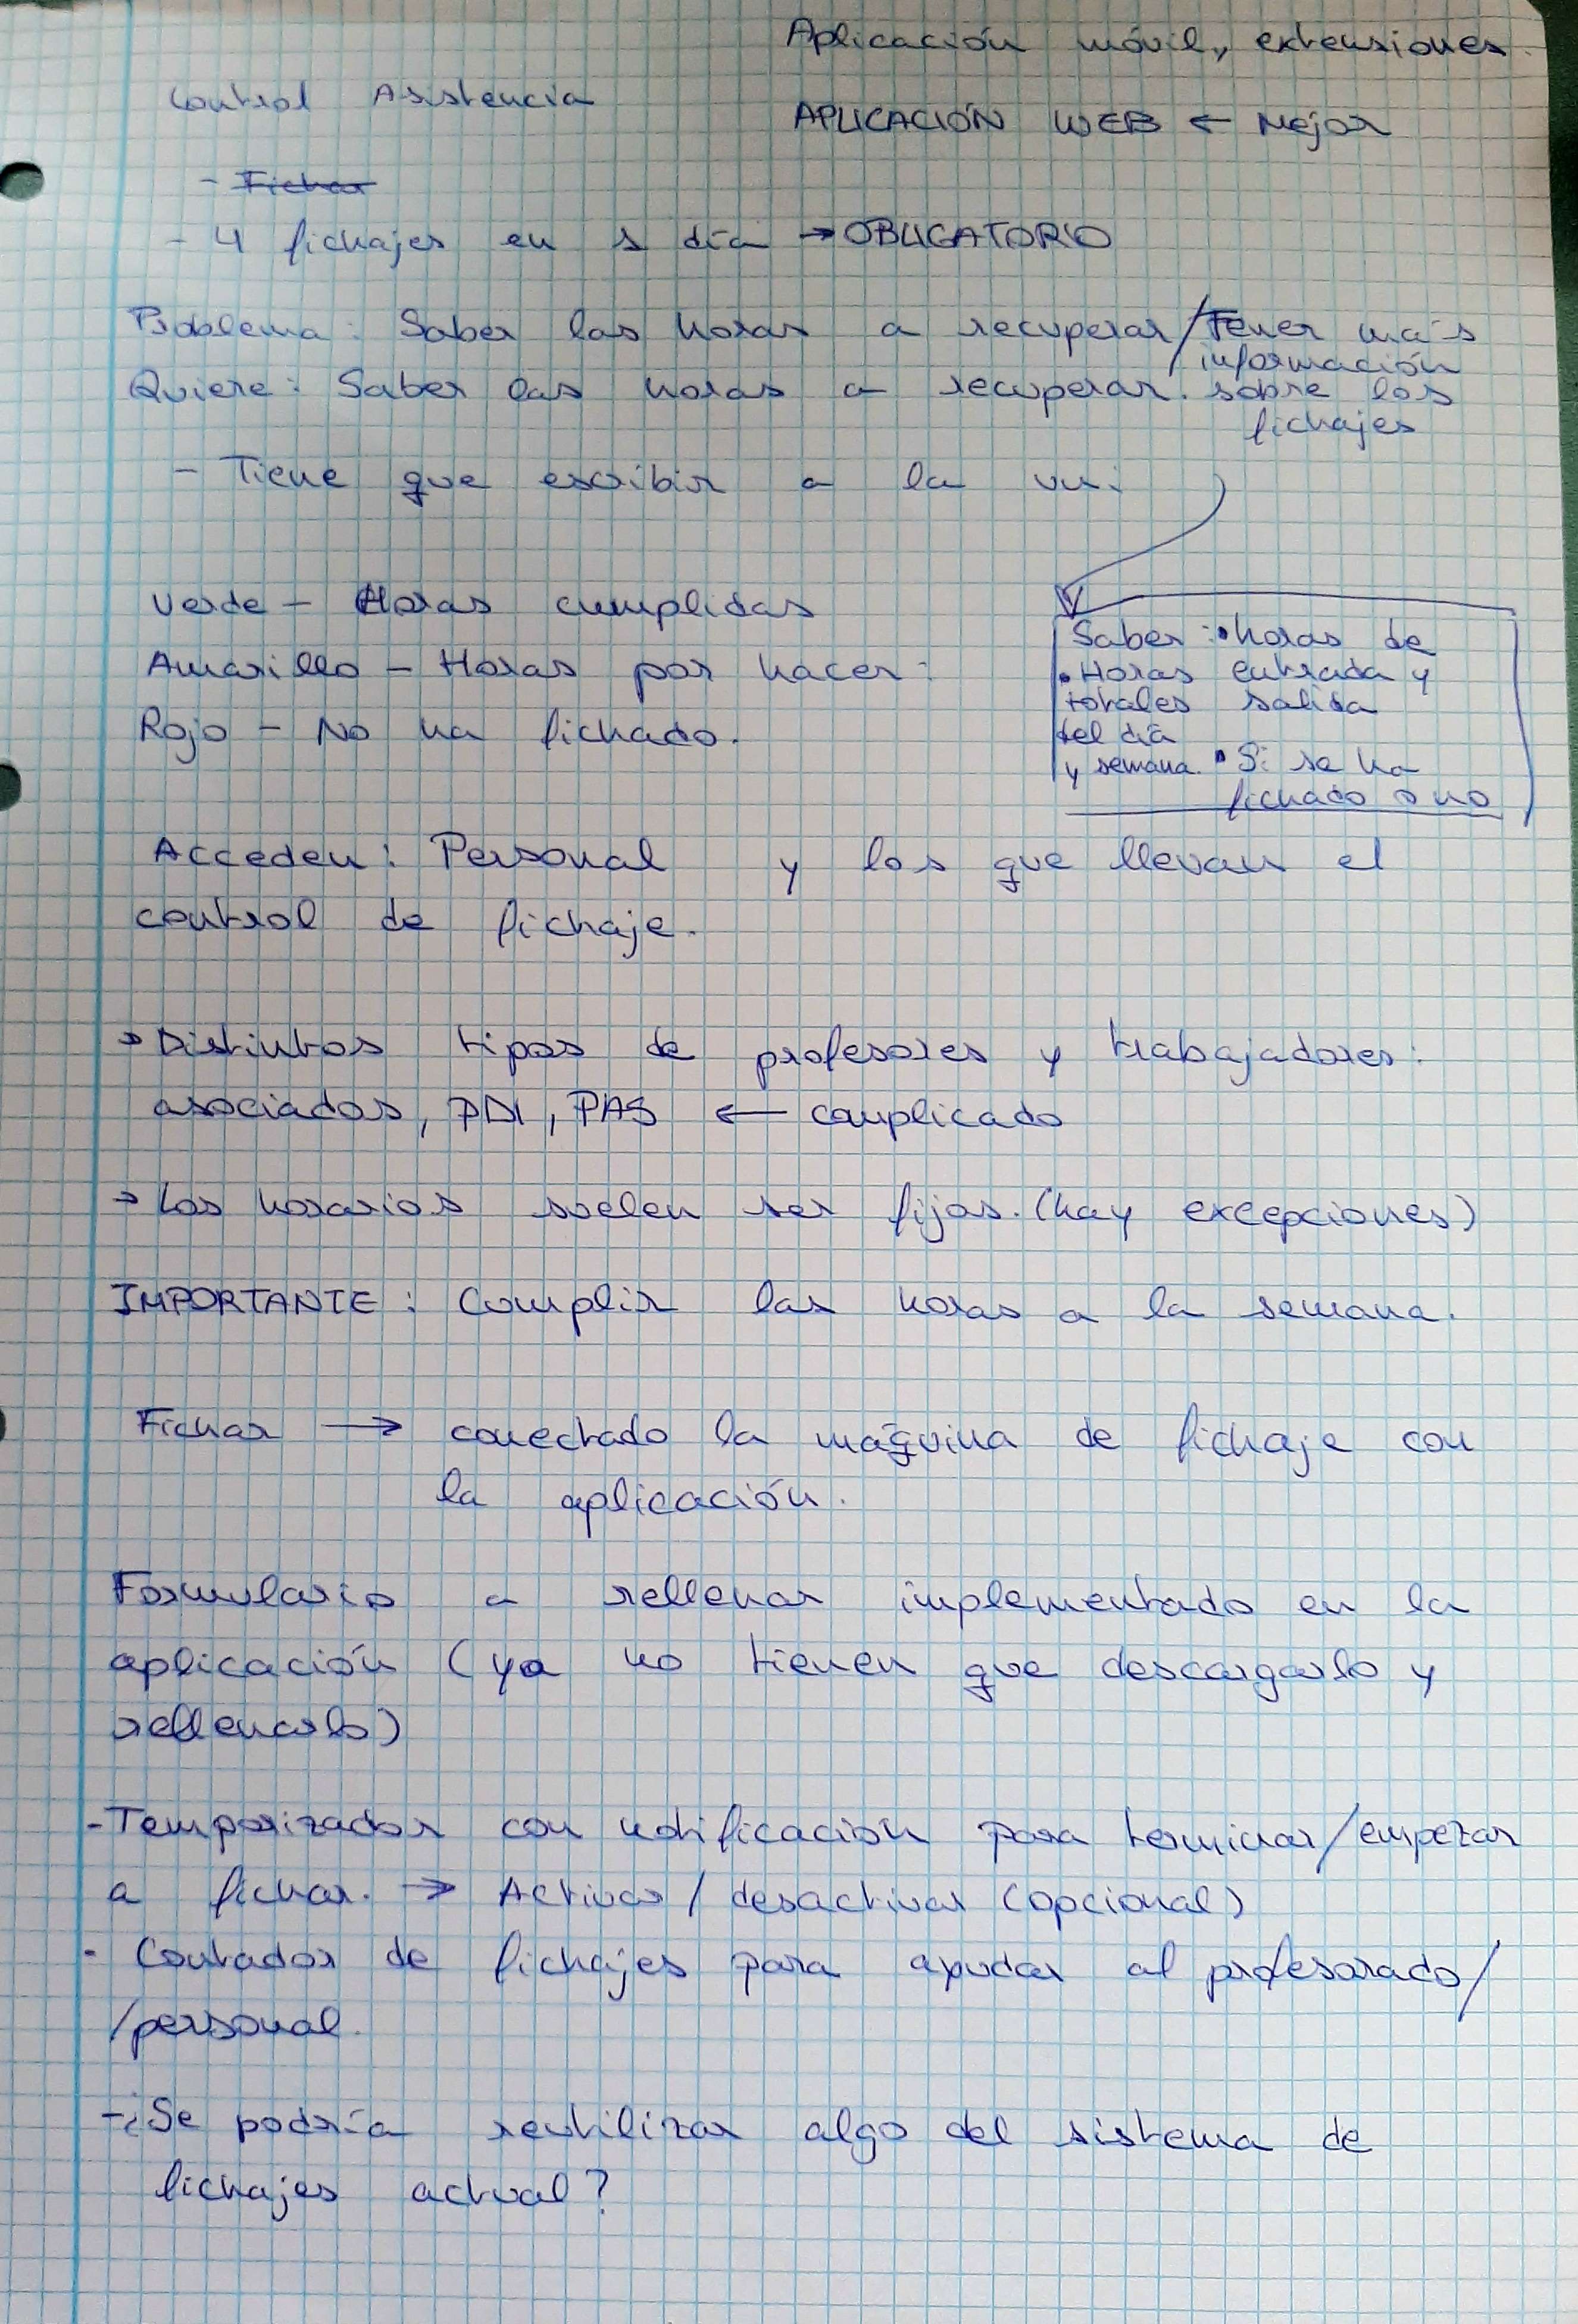 Aplicación móvil, extensiones.
Control Asistencia
APLICACIÓN WEB ← Mejor
- Fichar
- 4 fichajes en 1 día → OBLIGATORIO
Problema: Saber las horas a recuperar/Tener más
información
Quiere: Saber las horas a recuperar. sobre los
fichajes
- Tiene que escribir a la uni
Verde - Horas cumplidas
Amarillo - Horas por hacer:
Rojo - No ha fichado.
Saber: • horas de
entrada y
salida
• Horas
totales
del día
y semana.
• Si se ha
fichado o no
Acceden: Personal y los que llevan el
control de fichaje.
→ Distintos tipos de profesores y trabajadores:
asociados, PDI, PAS ← complicado
→ Los horarios suelen ser fijos. (hay excepciones)
IMPORTANTE: Cumplir las horas a la semana.
Fichar → conectado la máquina de fichaje con
la aplicación.
Formulario a rellenar implementado en la
aplicación (ya no tienen que descargarlo y
rellenarlo)
- Temporizador con notificación para terminar/empezar
a fichar. → Activar / desactivar (opcional)
- Contador de fichajes para ayudar al profesorado/
/personal.
- ¿Se podría reutilizar algo del sistema de
fichajes actual?